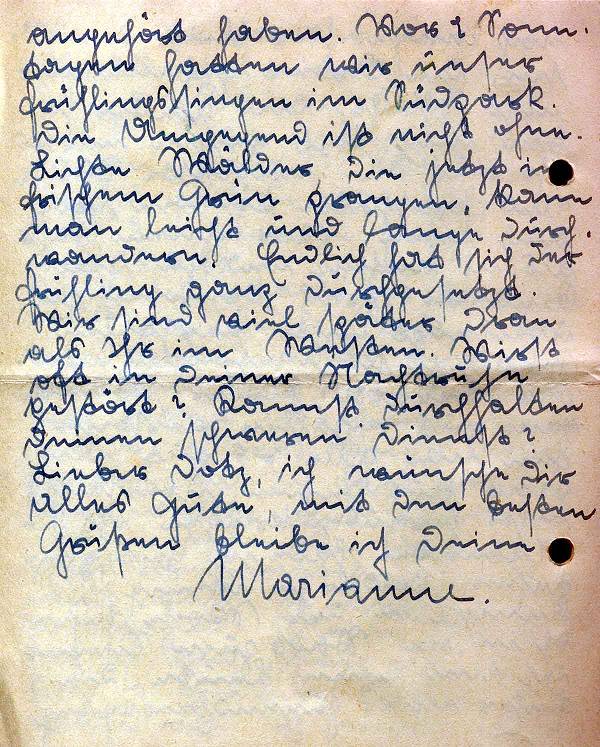 angehört haben. Vor 2 Sonn-
tagen hatten wir unser
Frühlingssingen im Südpark.
Die Umgegend ist nicht ohne.
Lichte Wälder die jetzt in
frischem Grün prangen, kann
man leicht und lange durch-
wandern. Endlich hat sich der
Frühling ganz durchgesetzt.
Wir sind viel später dran
als Ihr im Westen. Wirst
oft in Deiner Nachtruhe
gestört? Kannst durchhalten
Deinen schweren Dienst?
Lieber Dotz, ich wünsche Dir
alles Gute, mit den besten
Grüßen bleibe ich Deine
Marianne.